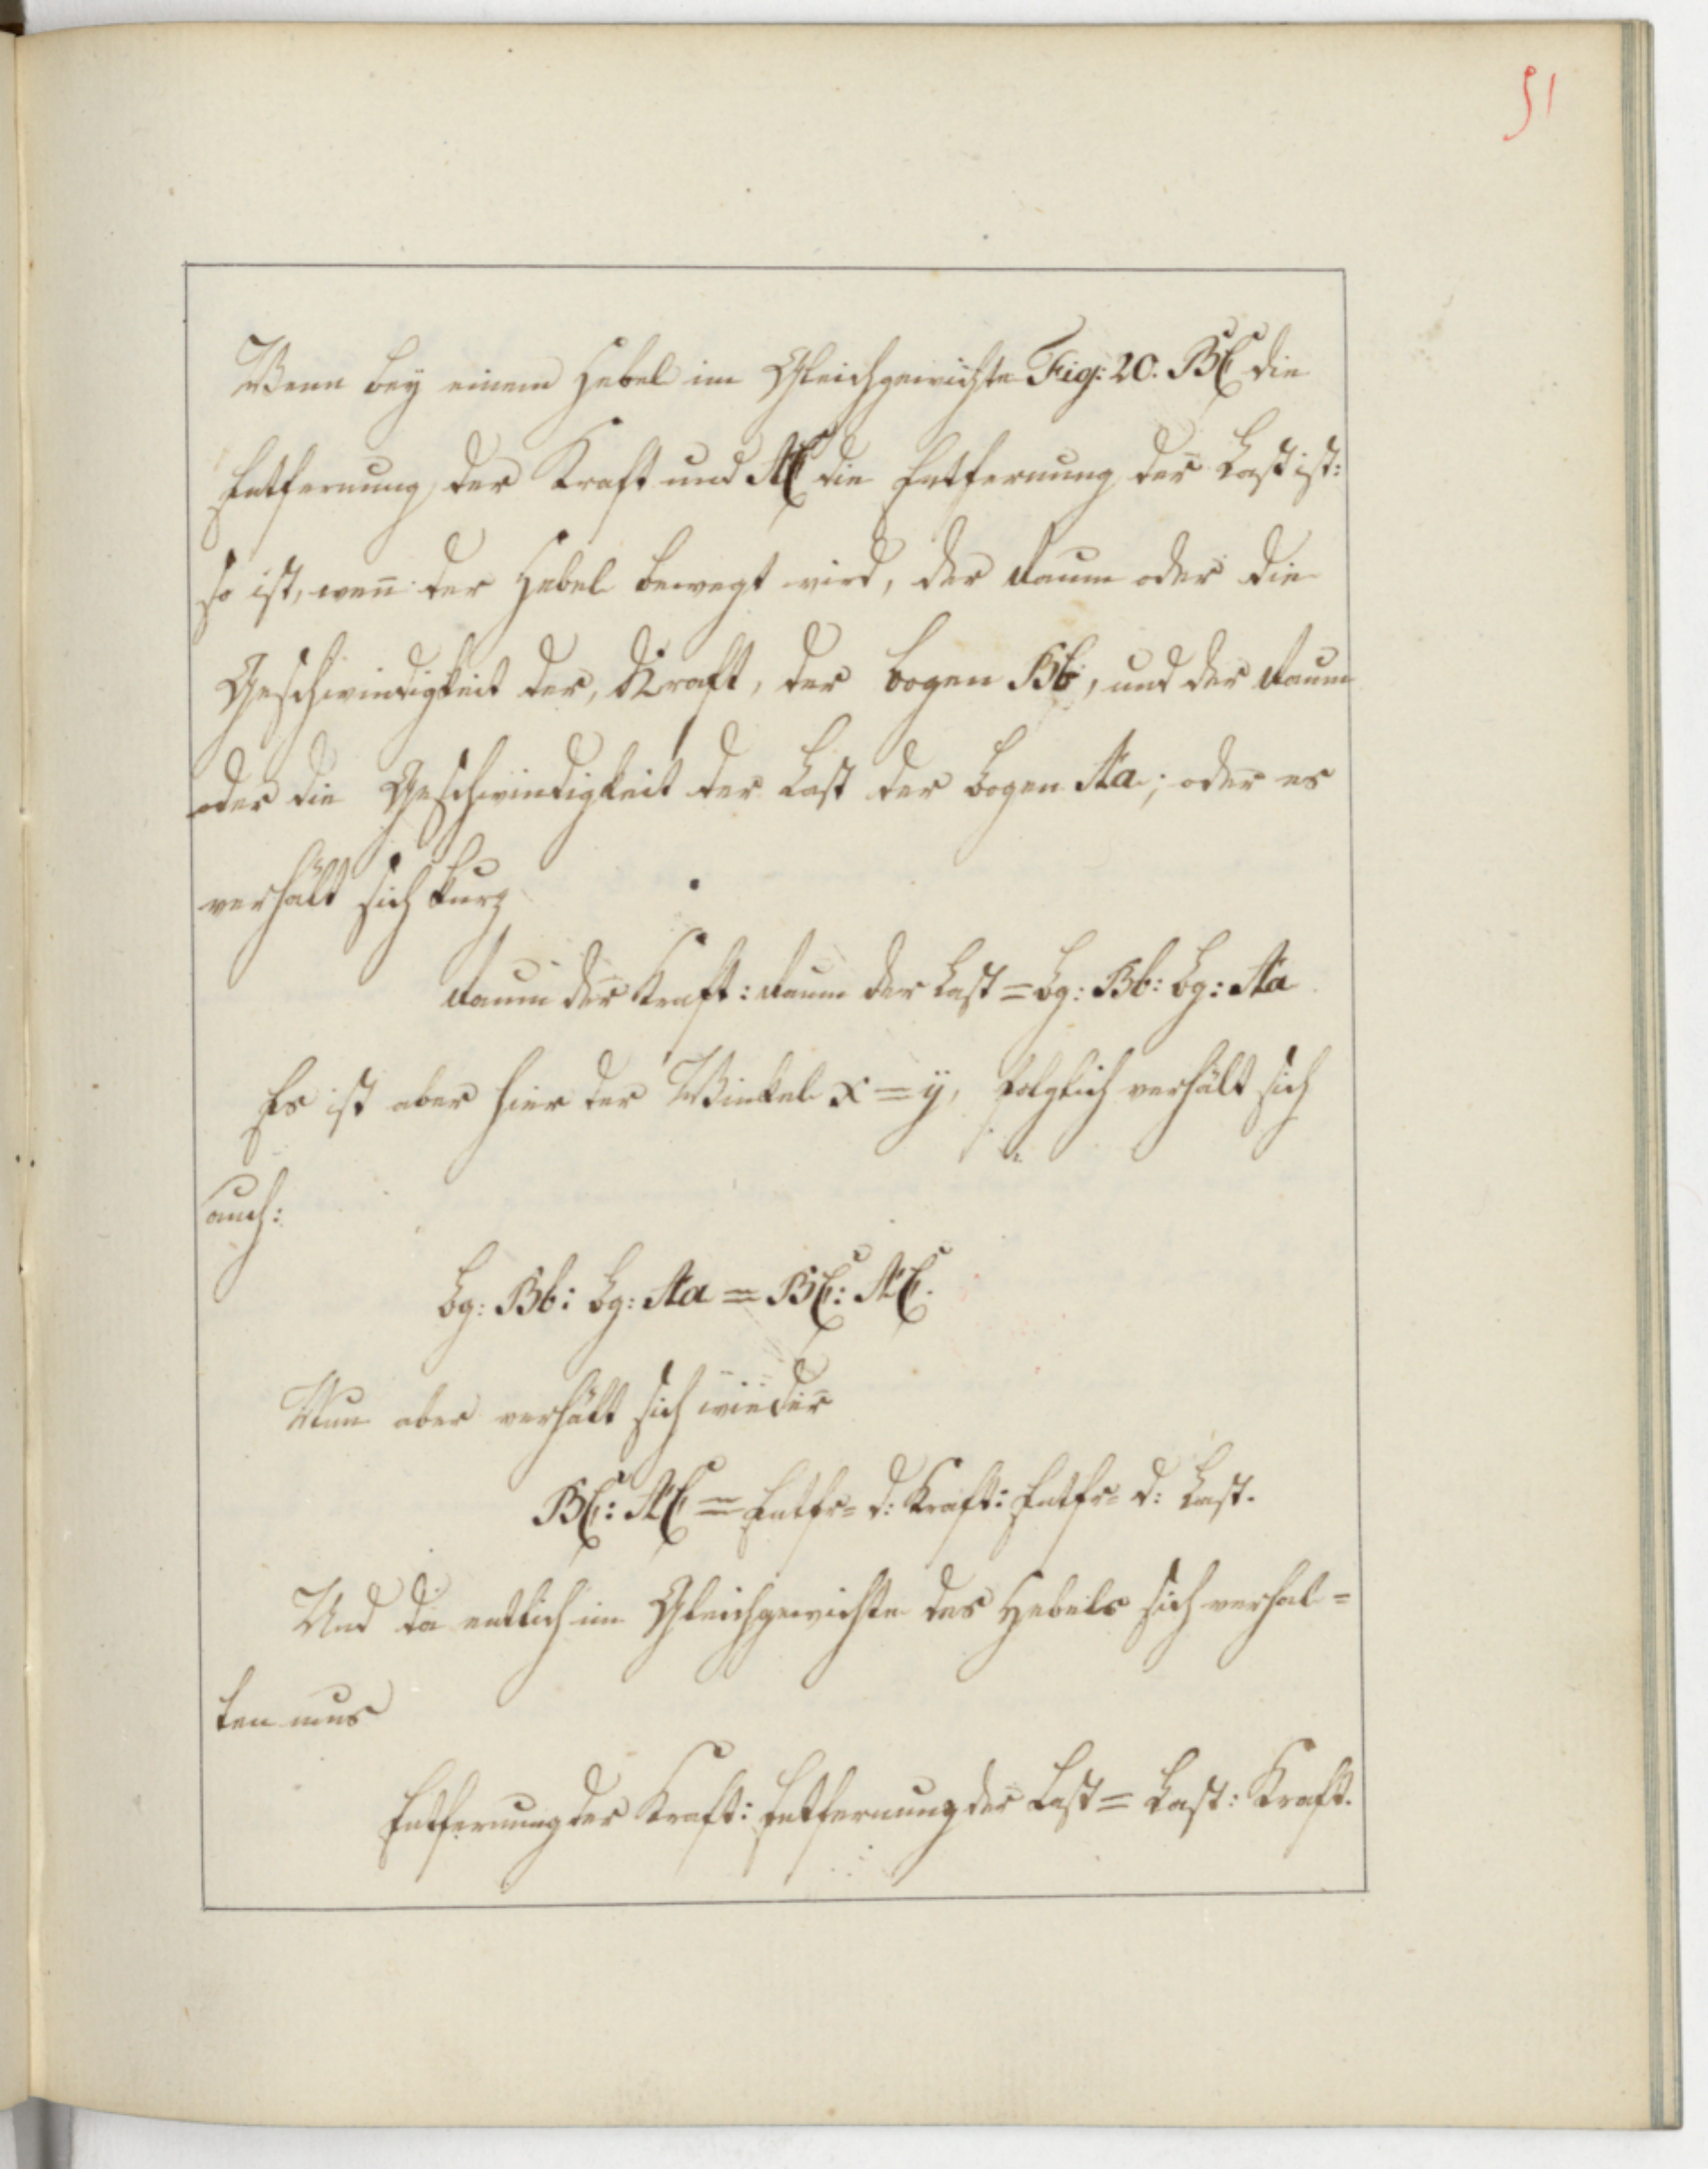 51
Wenn bey einem Hebel im Gleichgewichte Fig: 20. BC die
Entfernung der Kraft und AC die Entfernung der Last ist:
so ist, weñ der Hebel bewegt wird, der Raum oder die
Geschwindigkeit der, Kraft, der bogen Bb, und der Raum
oder die Geschwindigkeit der Last der bogen Aa; oder es
verhält sich kurz
Raum der Kraft: Raum der Last = Bg: Bb: Bg: Aa
Es ist aber hier der Winkel x = ÿ, folglich verhält sich
auch:
Bg: Bb: Bg: Aa = BC: AC.
Nun aber verhält sich wieder
BC: AC = Entfr= d: Kraft: Entfr= d: Last.
Und da entlich im Gleichgewichte des Hebels sich verhal=
ten mus
Entfernung der Kraft: Entfernung der Last = Last: Kraft.